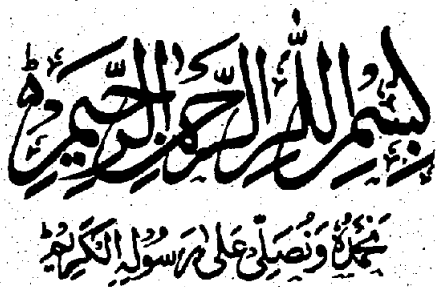 بِسْمِ اللّٰهِ الرَّحْمٰنِ الرَّحِيْمِ ؕ
نَحْمَدُهٗ وَنُصَلِّىْ عَلٰى رَسُوْلِهِ الْكَرِيْمِ ؕ